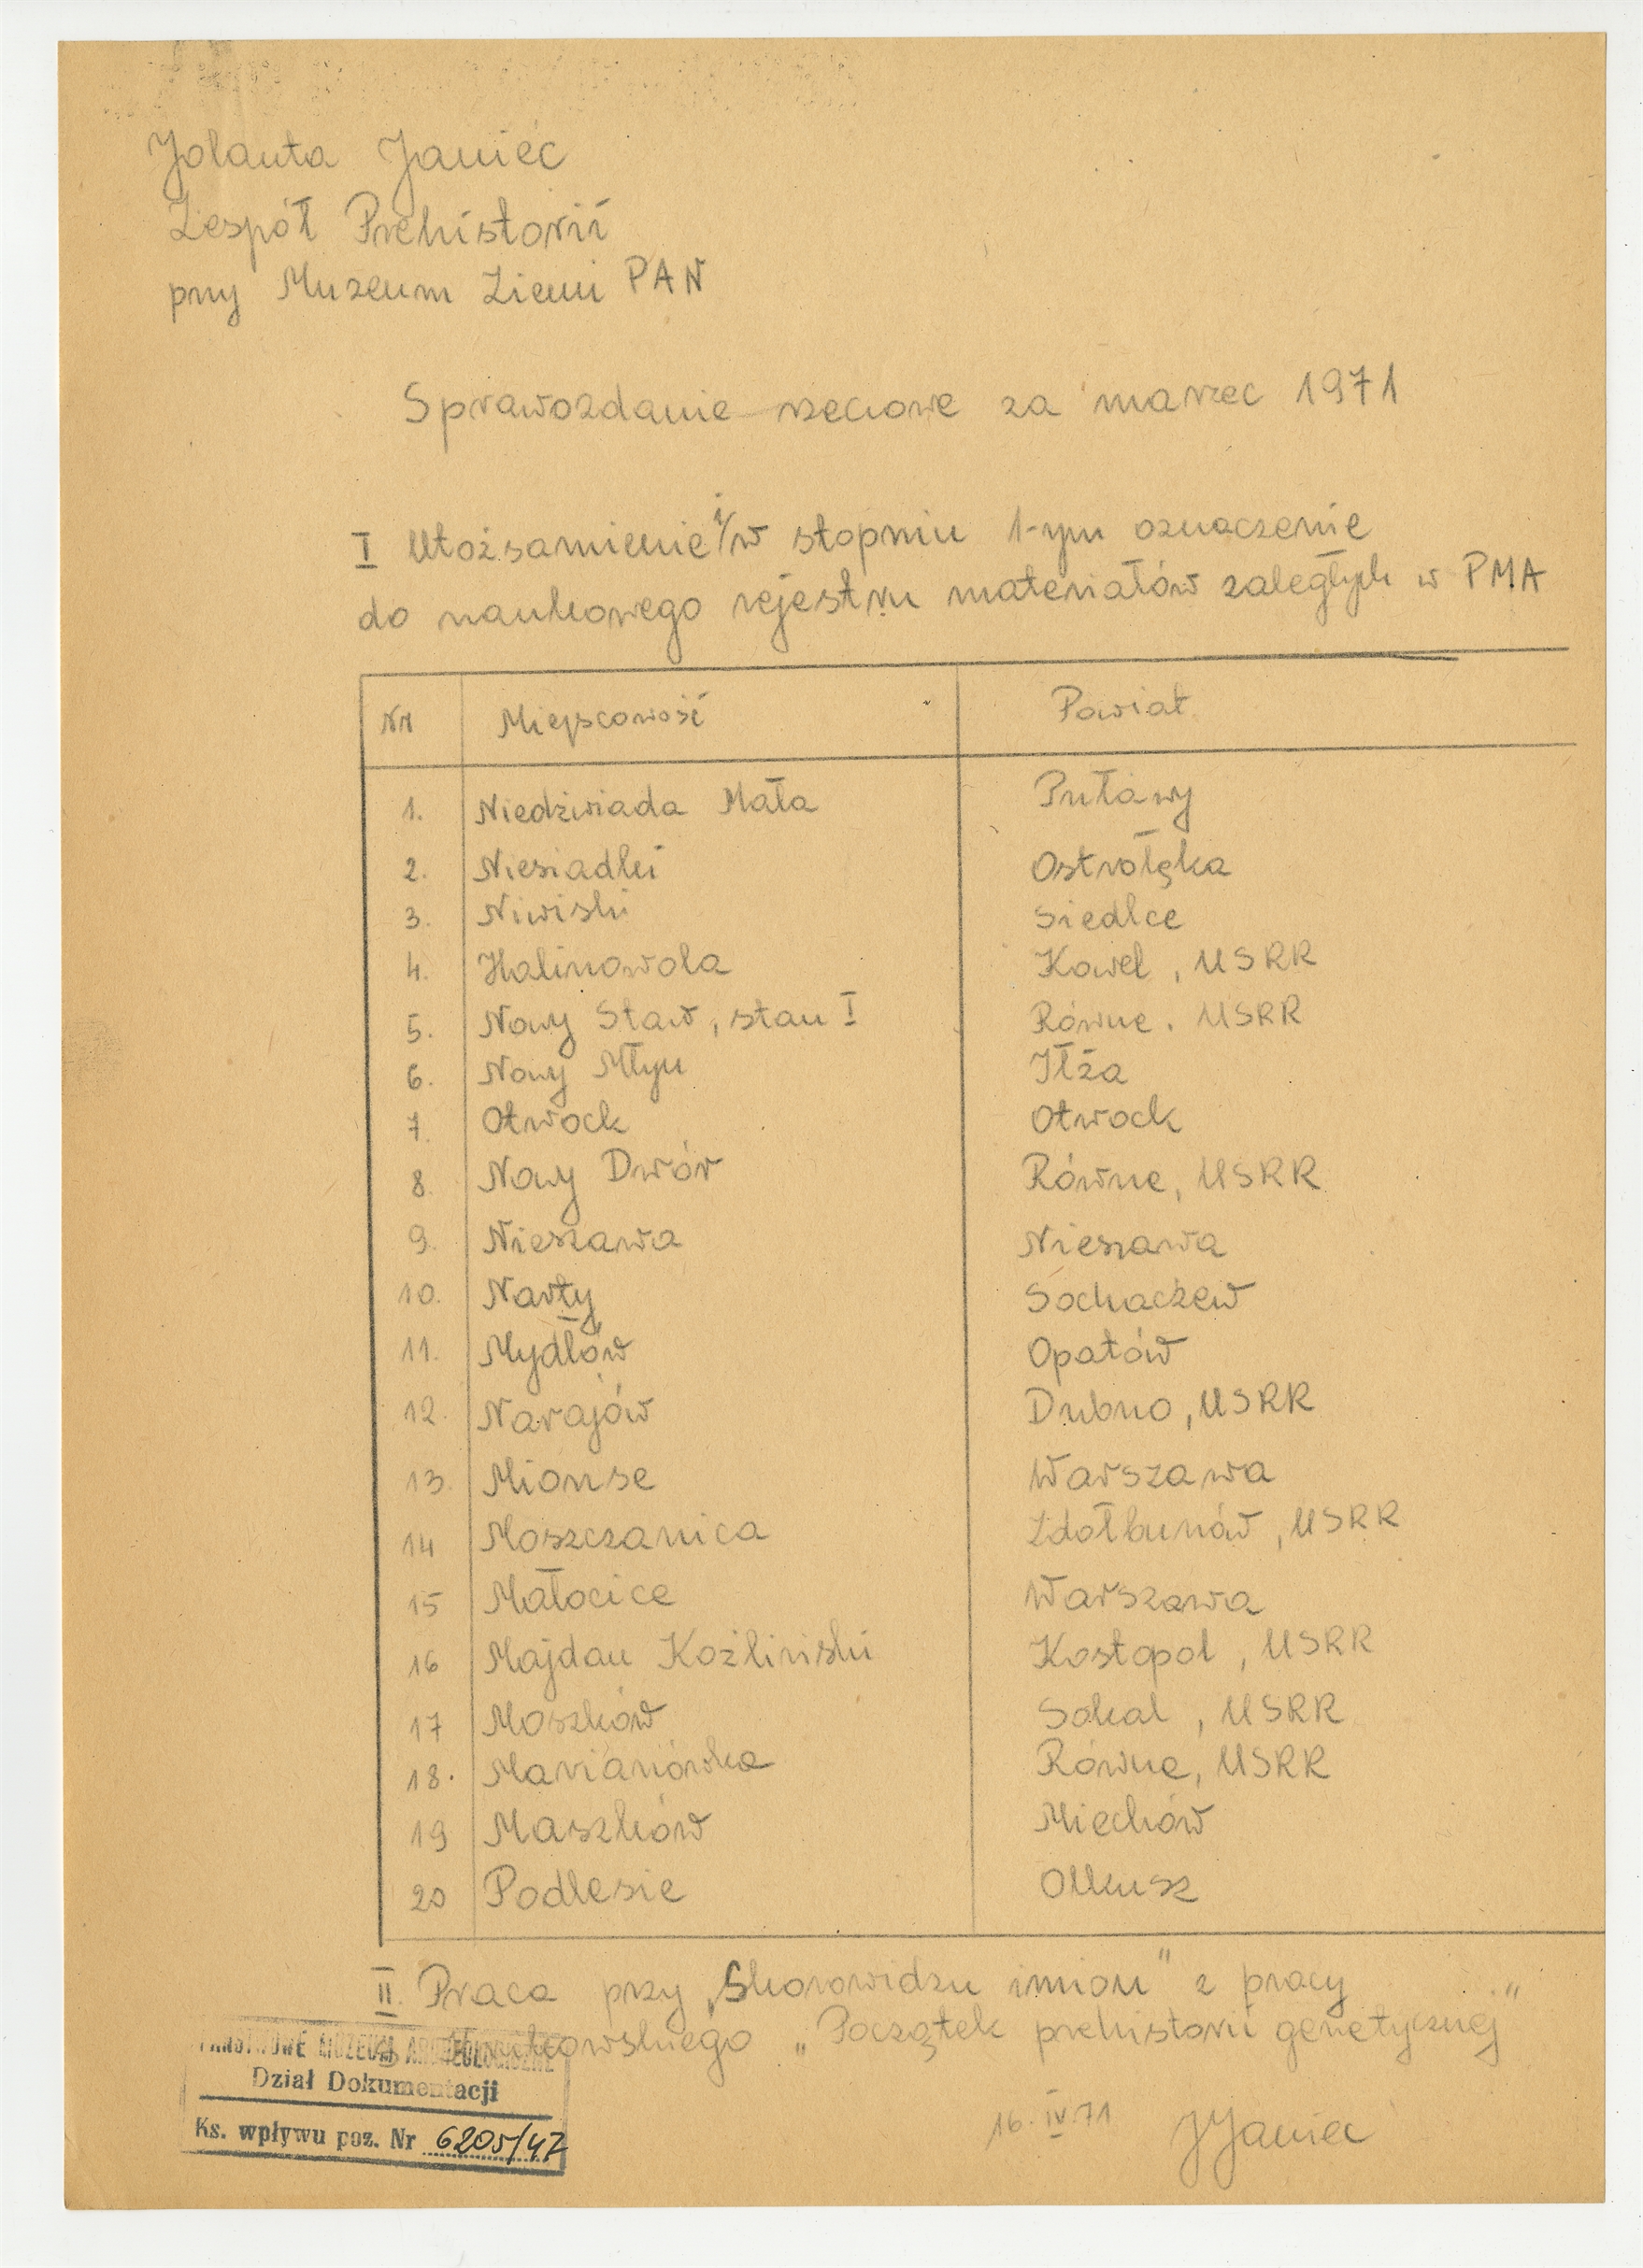 Jolanta Janiec
Zespół Prehistorii
przy Muzeum Ziemi PAN
Sprawozdanie rzeczowe za marzec 1971
I Utożsamienie i/w stopniu 1-ym oznaczenie
do naukowego rejestru materiałów zaległych w PMA
Nr Miejscowość Powiat
1. Niedźwiada Mała Puławy
2. Niesiadki Ostrołęka
3. Niwiski Siedlce
4. Halinowola Kowel, USRR
5. Nowy Staw, stan I Równe, USRR
6. Nowy Młyn Iłża
7. Otwock Otwock
8. Nowy Dwór Równe, USRR
9. Nieszawa Nieszawa
10. Narty Sochaczew
11. Mydłów Opatów
12. Narajów Dubno, USRR
13. Mionse Warszawa
14 Moszczanica Zdołbunów, USRR
15 Małocice Warszawa
16 Majdan Koźliński Kostopol, USRR
17 Moszków Sokal, USRR
18. Marianówka Równe, USRR
19 Maszków Miechów
20 Podlesie Olkusz
II. Praca przy „Skorowidzu imion" z pracy
„Początek prehistorii genetycznej"
PAŃSTWOWE MUZEUM ARCHEOLOGICZNE
Dział Dokumentacji
Ks. wpływu poz. Nr 6205/47
16.IV.71 JJaniec